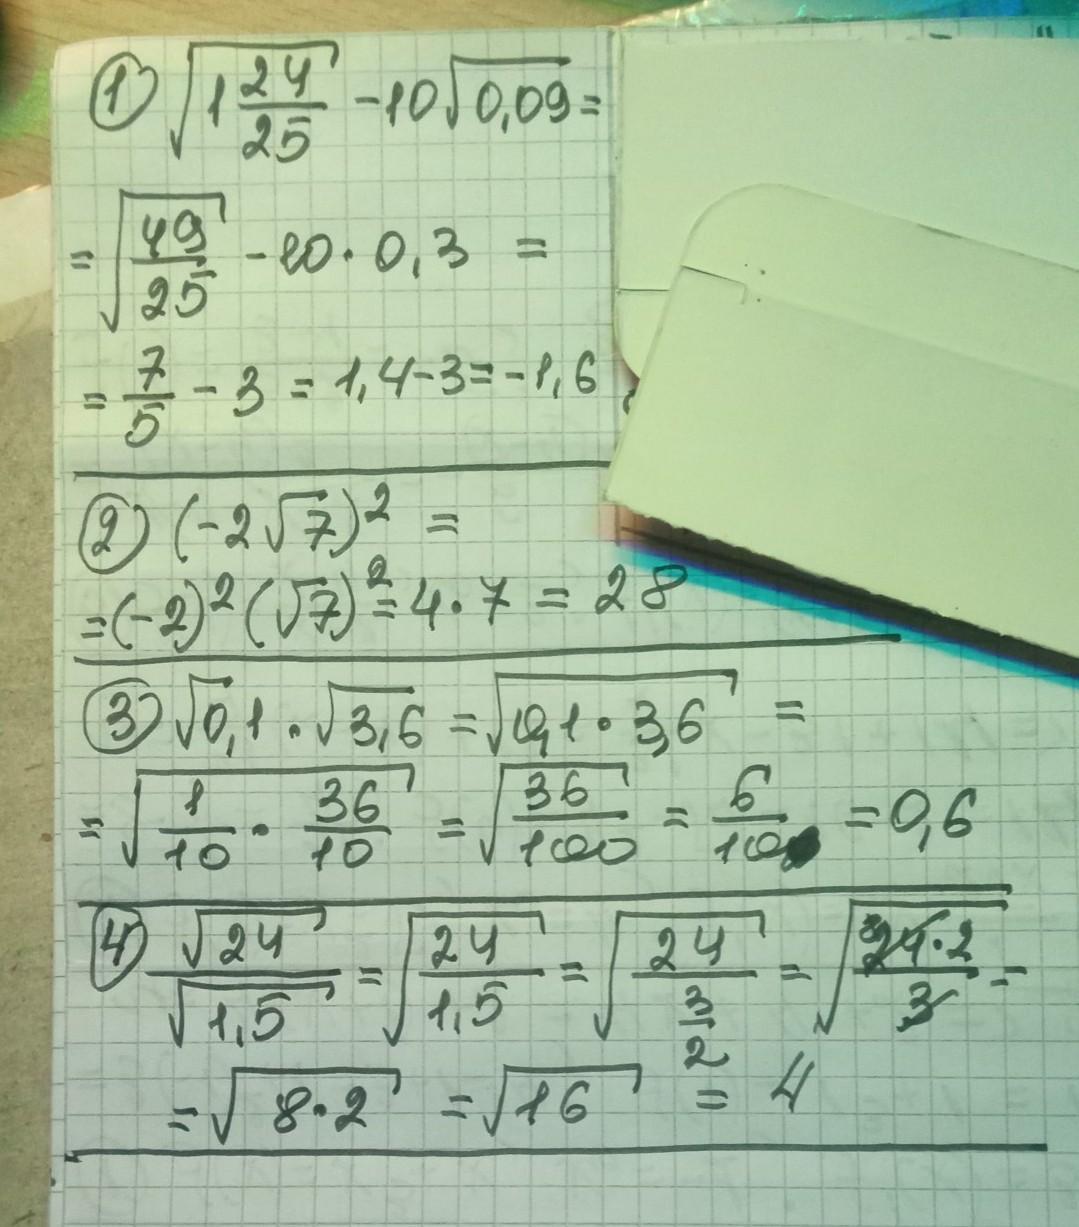 ① √(1 24/25) - 10√0,09 =
= √(49/25) - 10 · 0,3 =
= 7/5 - 3 = 1,4 - 3 = -1,6
② (-2√7)² =
= (-2)² (√7)² = 4 · 7 = 28
③ √0,1 · √3,6 = √(0,1 · 3,6) =
= √(1/10 · 36/10) = √(36/100) = 6/10 = 0,6
④ √24/√1,5 = √(24/1,5) = √(24/(3/2)) = √(24·2/3) =
= √(8·2) = √16 = 4